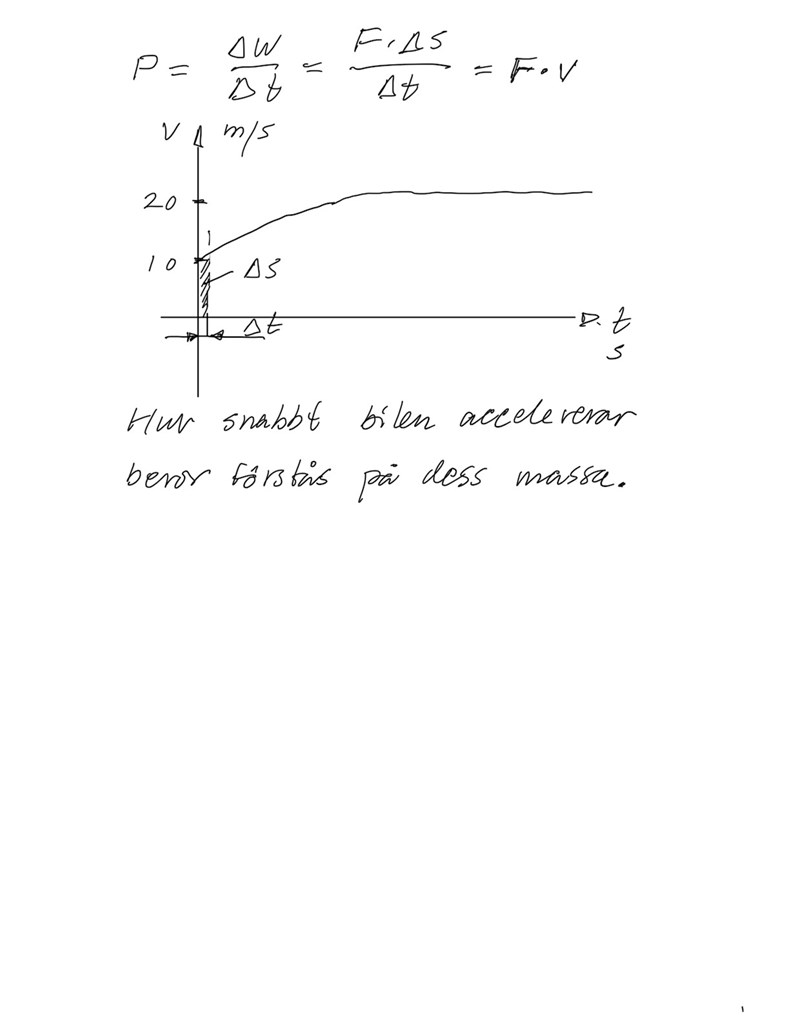 P = ΔW/Δt = F·Δs/Δt = F·v
V m/s
20
1
10
Δs
Δt
t
s
Hur snabbt bilen accelererar
beror förstås på dess massa.
1